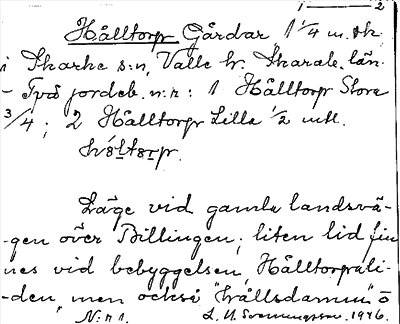 1 — 2
Hålltorp Gårdar 1 1/4 m
i Skarke s:n, Valle hr. Skarab. län.
- Två jordeb. n:r: 1 Hålltorp Stora
3/4; 2 Hålltorp Lilla 1/2 mtl.
Läge vid gamla landsvä-
-gen över Billingen; liten lid fin
nes vid bebyggelsen, Hålltorpali-
-den, men också
N:r 1. 1946.